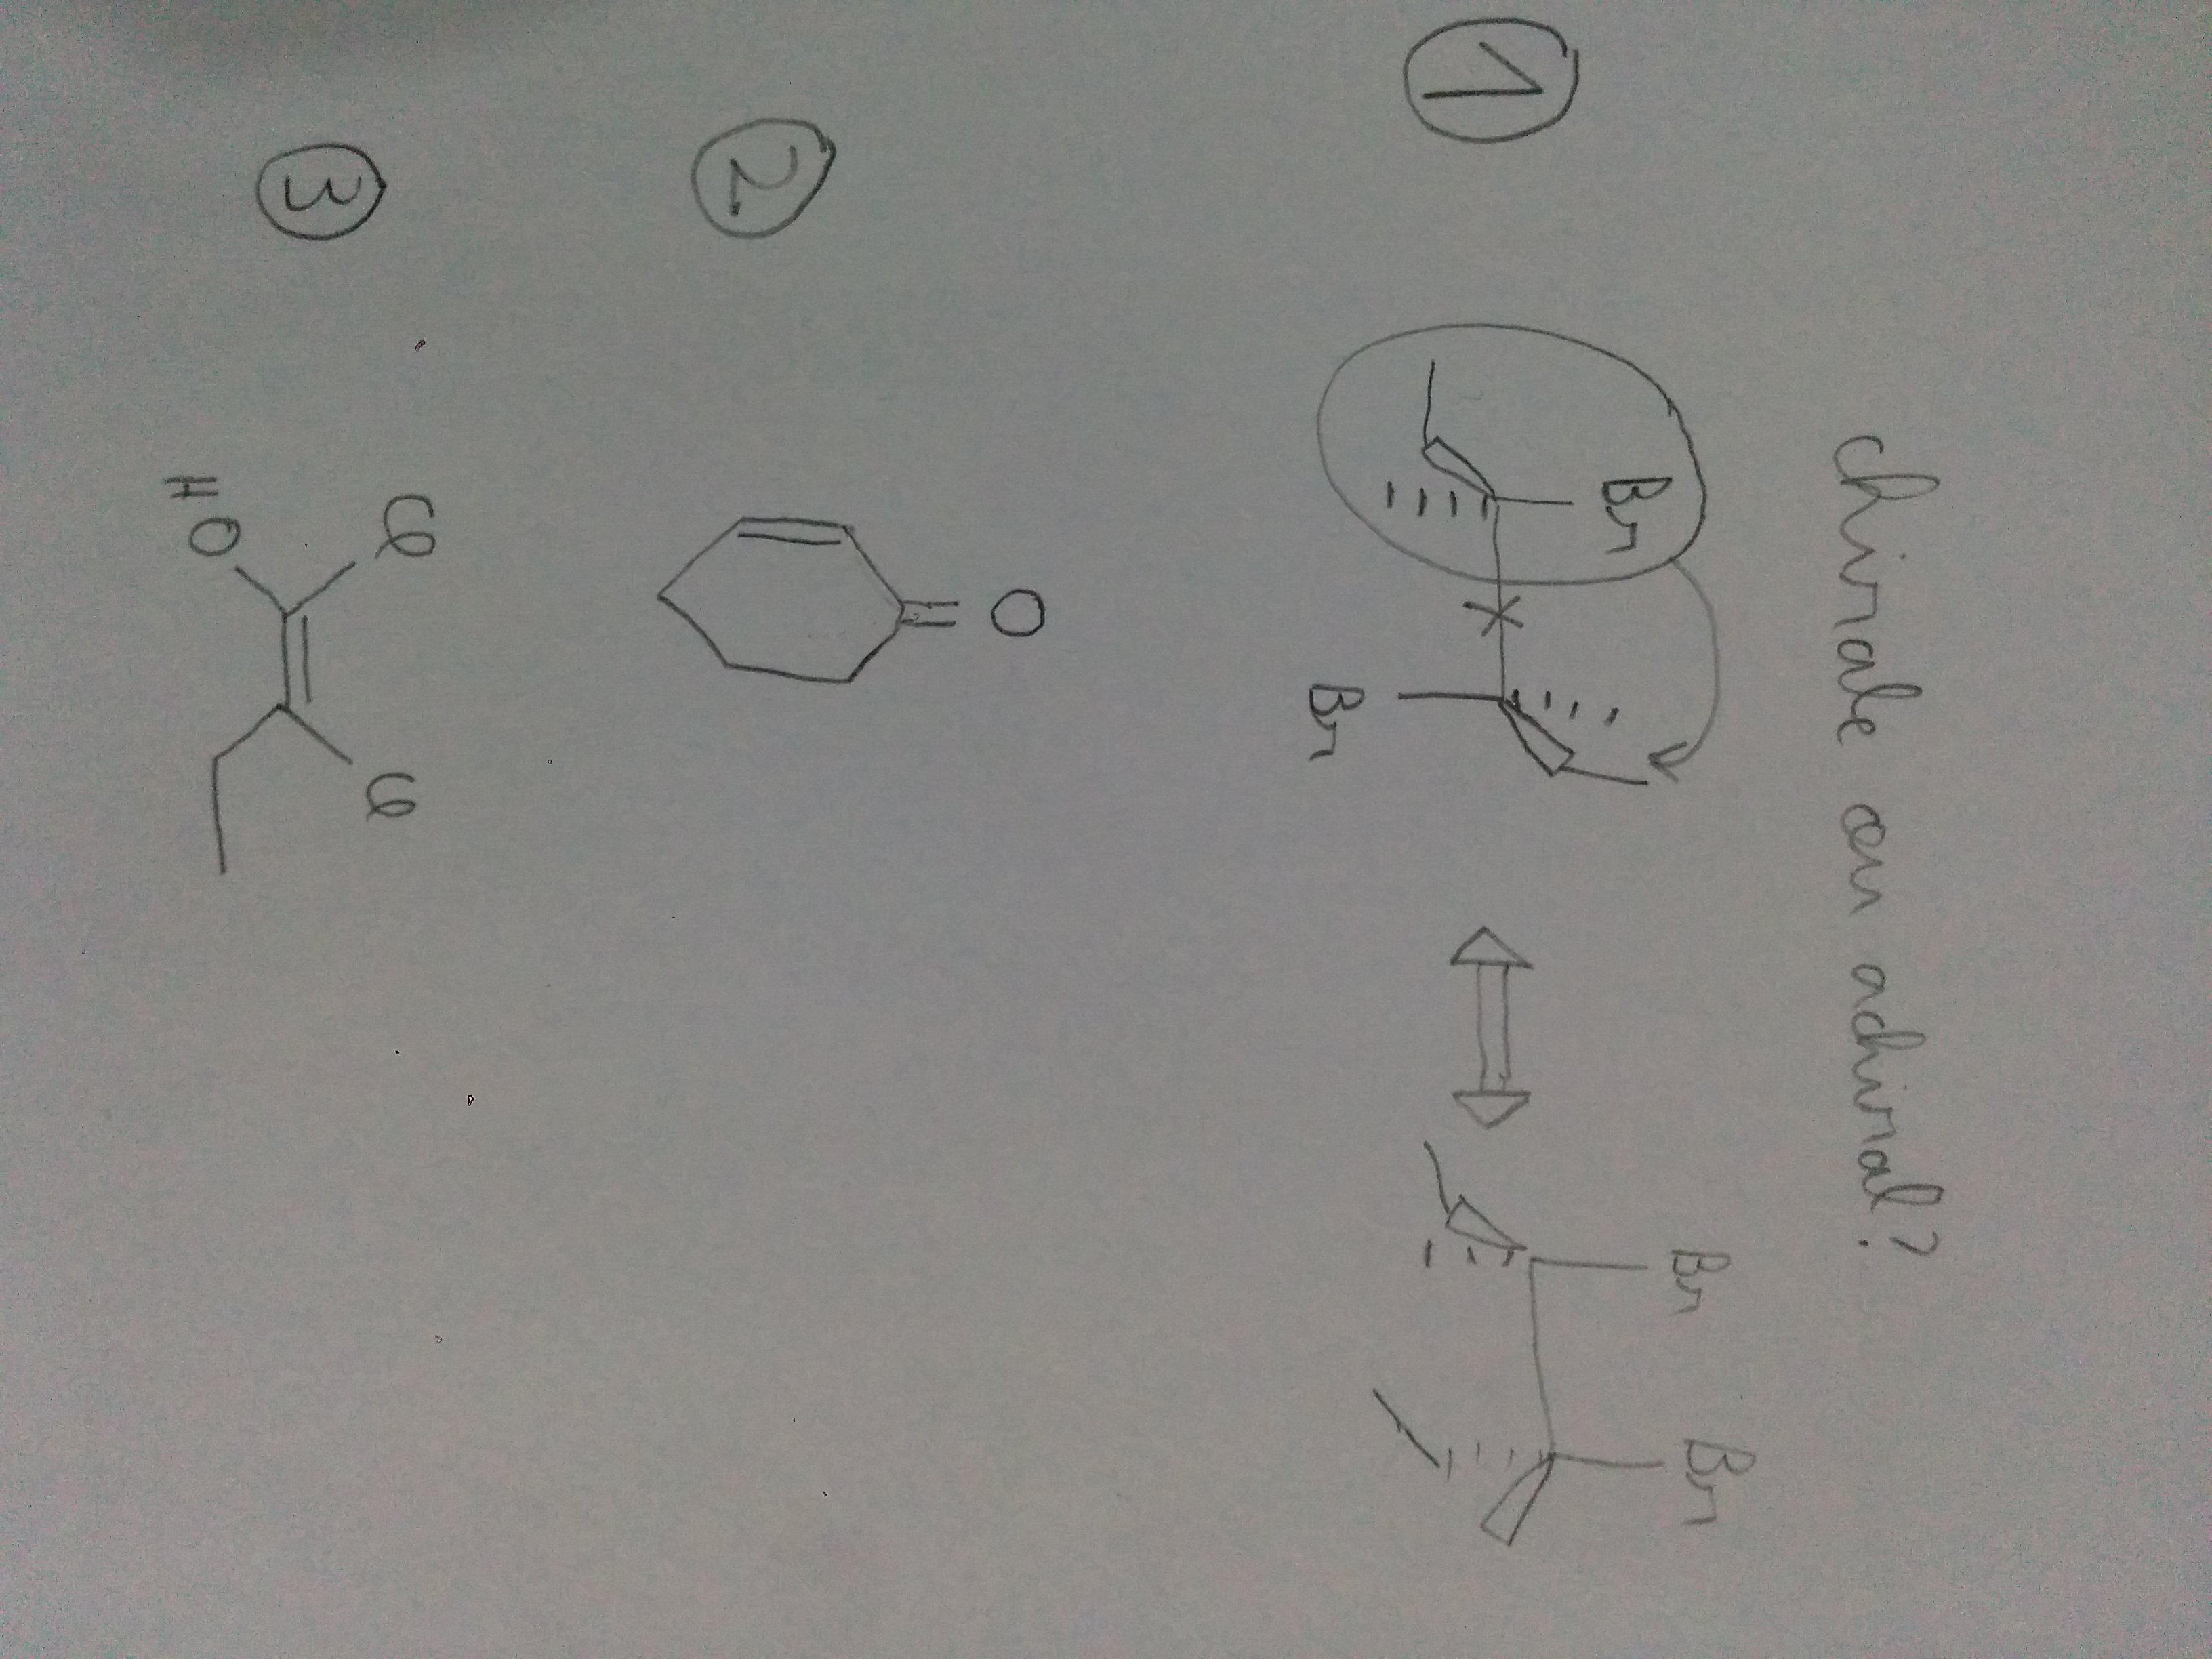 chirale ou achiral?
Br Br Br
1
Br
O
2
Cl Cl
3
HO